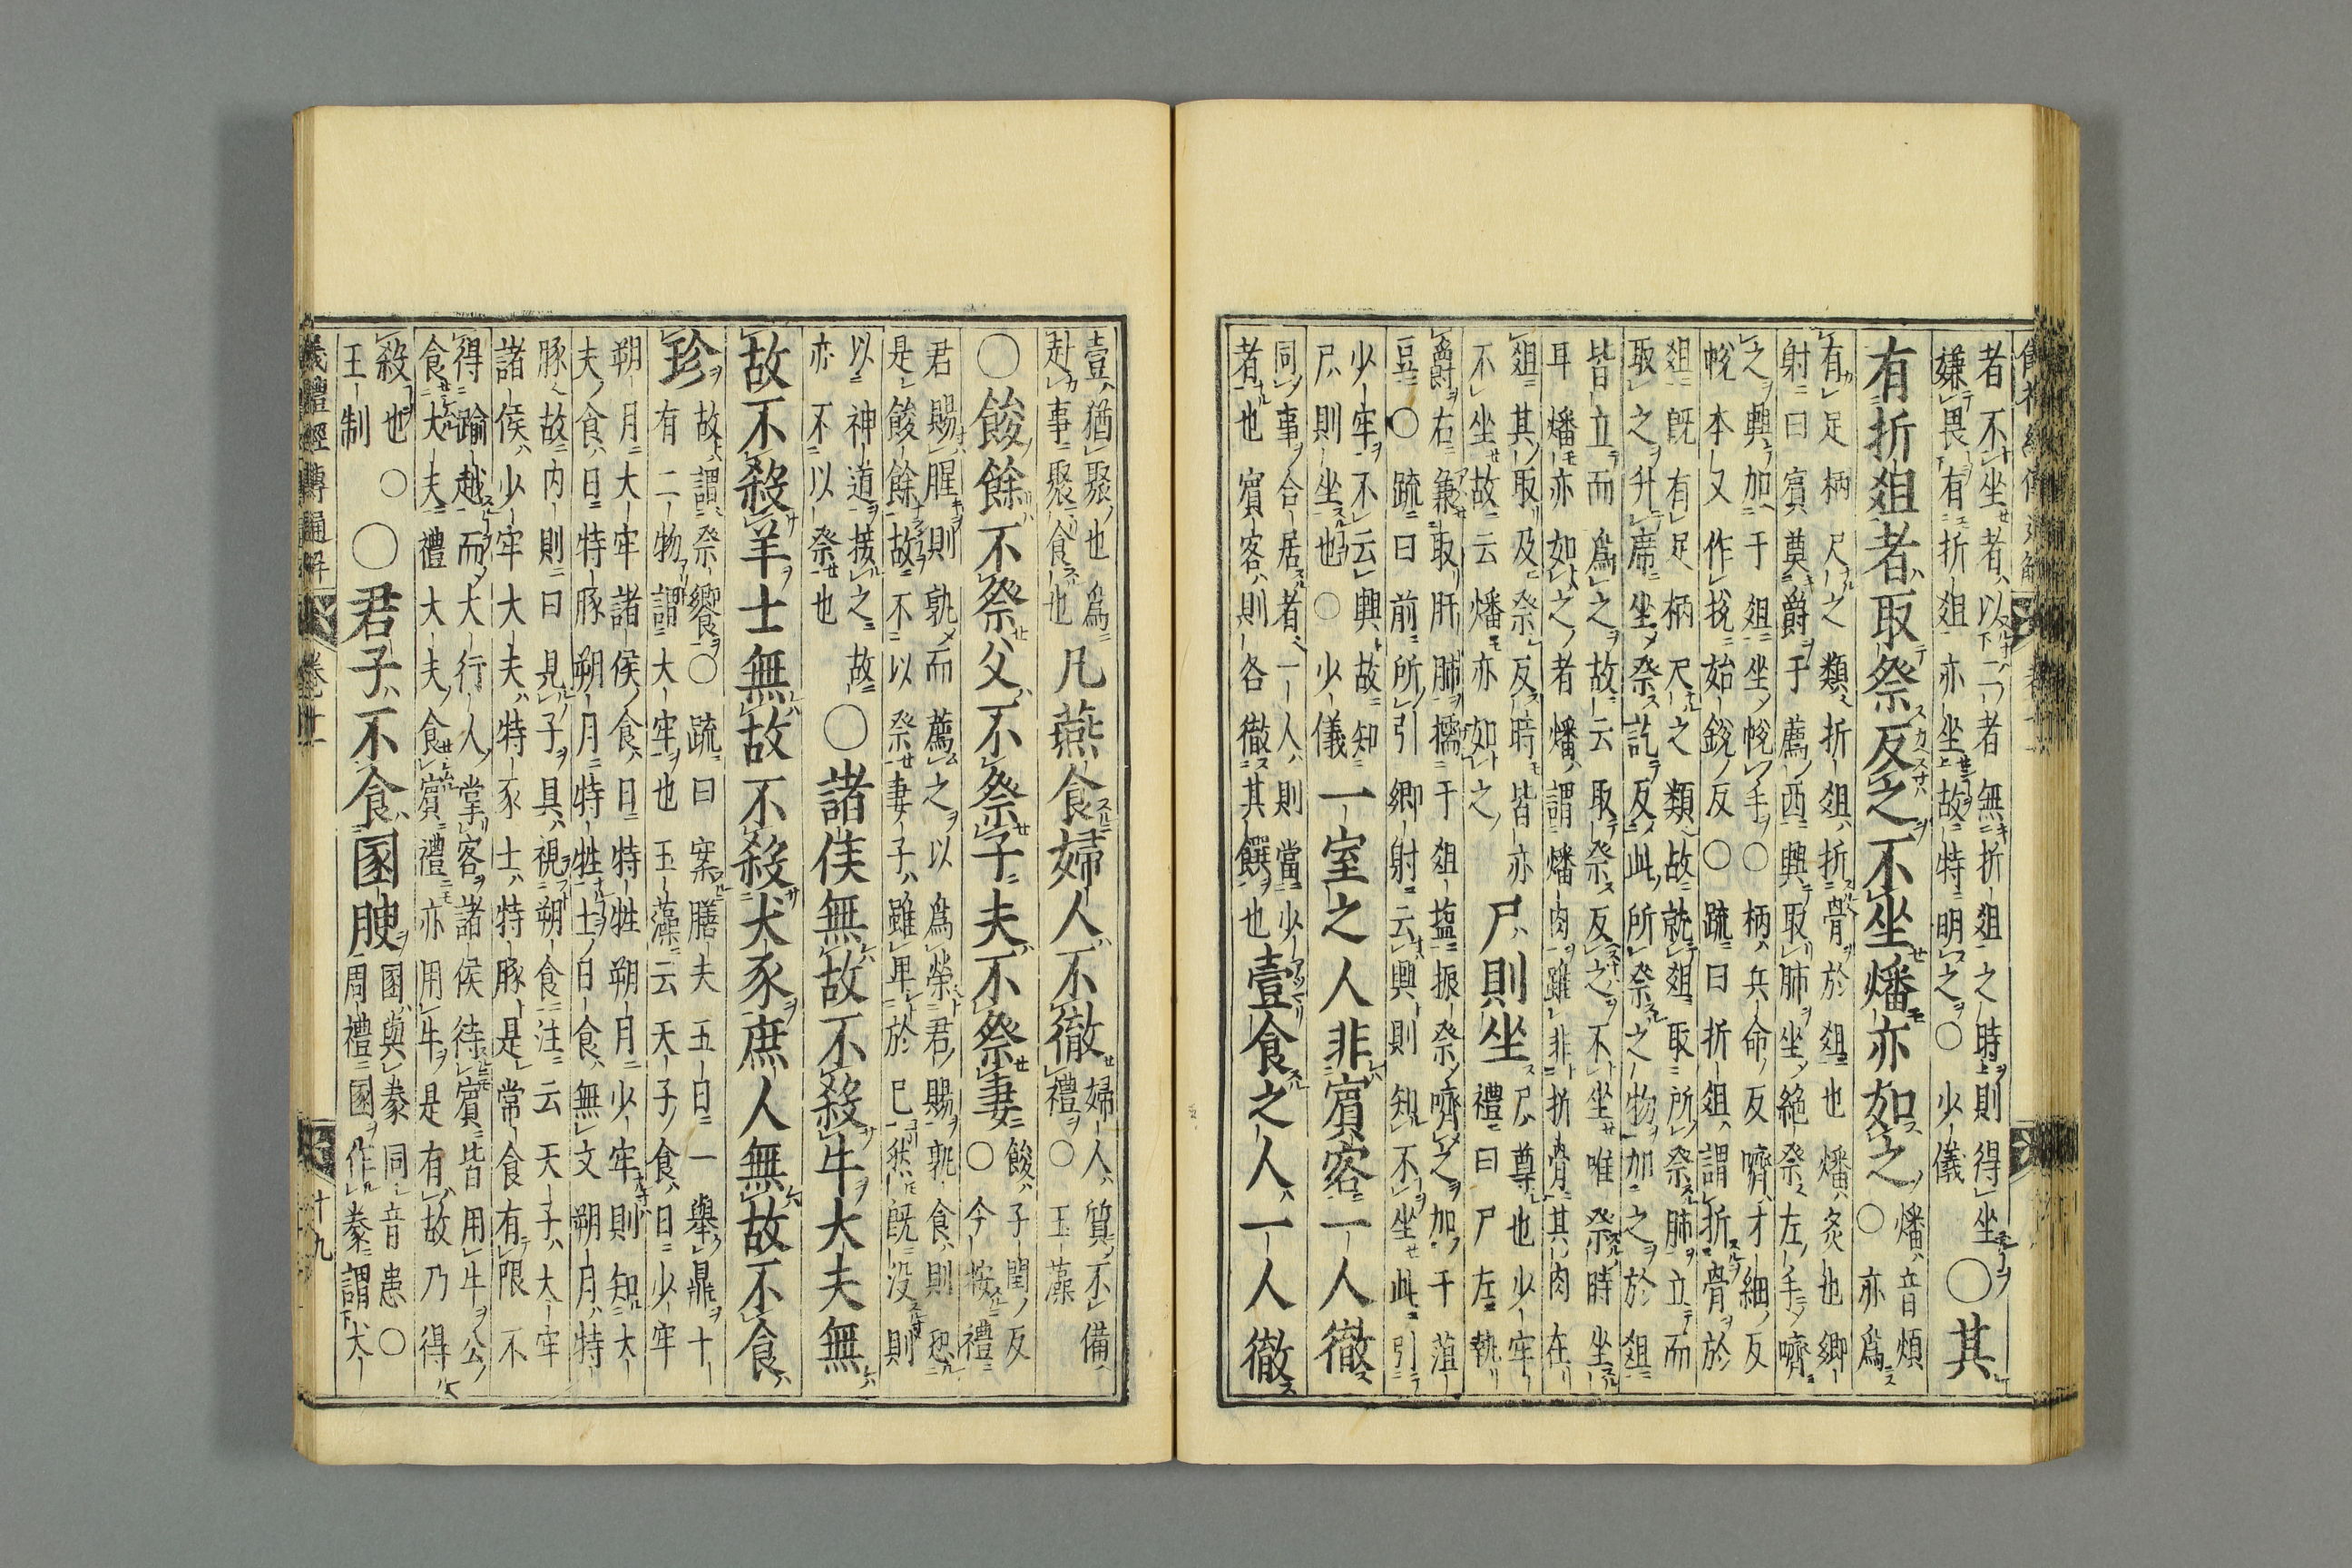 者不坐者以二者無折俎之時則得坐
嫌畏有折俎亦坐故特明之○少儀
○其
有折俎者取祭反之不坐燔亦如之
燔音煩
○亦爲
有足柄尺之類折俎折骨於俎也燔炙也鄉
射曰賓奠爵于薦西興取肺坐絶祭左手嚌
之興加于俎坐帨手○柄兵命反嚌才細反
帨本又作挩始銳反○疏曰折俎謂折骨於
俎既有足柄尺之類故就俎取所祭肺立而
取之升席坐祭訖反此所祭之物加之於俎
皆立而爲之故云取祭反之不坐唯祭時坐
耳燔亦如之者燔謂燔肉雖非折骨其肉在
俎其取及祭反時皆亦
不坐故云燔亦如之
尸則坐
尸尊也少牢
禮曰尸左執
爵右兼取肝肺擩于俎鹽振祭嚌之加于菹
豆○疏曰前所引鄉射云興則知不坐此引
少牢不云興故知
尸則坐也○少儀
一室之人非賓客一人徹
同事合居者一人則當少
者也賓客則各徹其饌也
壹食之人一人徹
壹猶聚也爲
赴事聚食也
凡燕食婦人不徹
婦人質不備
禮○玉藻
○餕餘不祭父不祭子夫不祭妻
餕子閏反
○今按禮
君賜腥則孰而薦之以爲榮君賜孰食則恐
是餕餘故不以祭妻子雖卑於已然既没則
以神道接之故
亦不以祭也
○諸侯無故不殺牛大夫無
故不殺羊士無故不殺犬豕庶人無故不食
珍
故謂祭饗○疏曰案膳夫王日一舉鼎十
有二物謂大牢也玉藻云天子食日少牢
朔月大牢諸侯食日特牲朔月少牢則知大
夫食日特豚朔月特牲士日食無文朔月特
豚故内則曰見子具視朔食注云天子大牢
諸侯少牢大夫特豕士特豚是常食有限不
得踰越而大行人掌客諸侯待賓皆用牛公
食大夫禮大夫食賓禮亦用牛是有故乃得
殺也○
王制
○君子不食圂腴
圂與豢同音患○
周禮圂作豢謂犬
儀禮經傳通解
十九